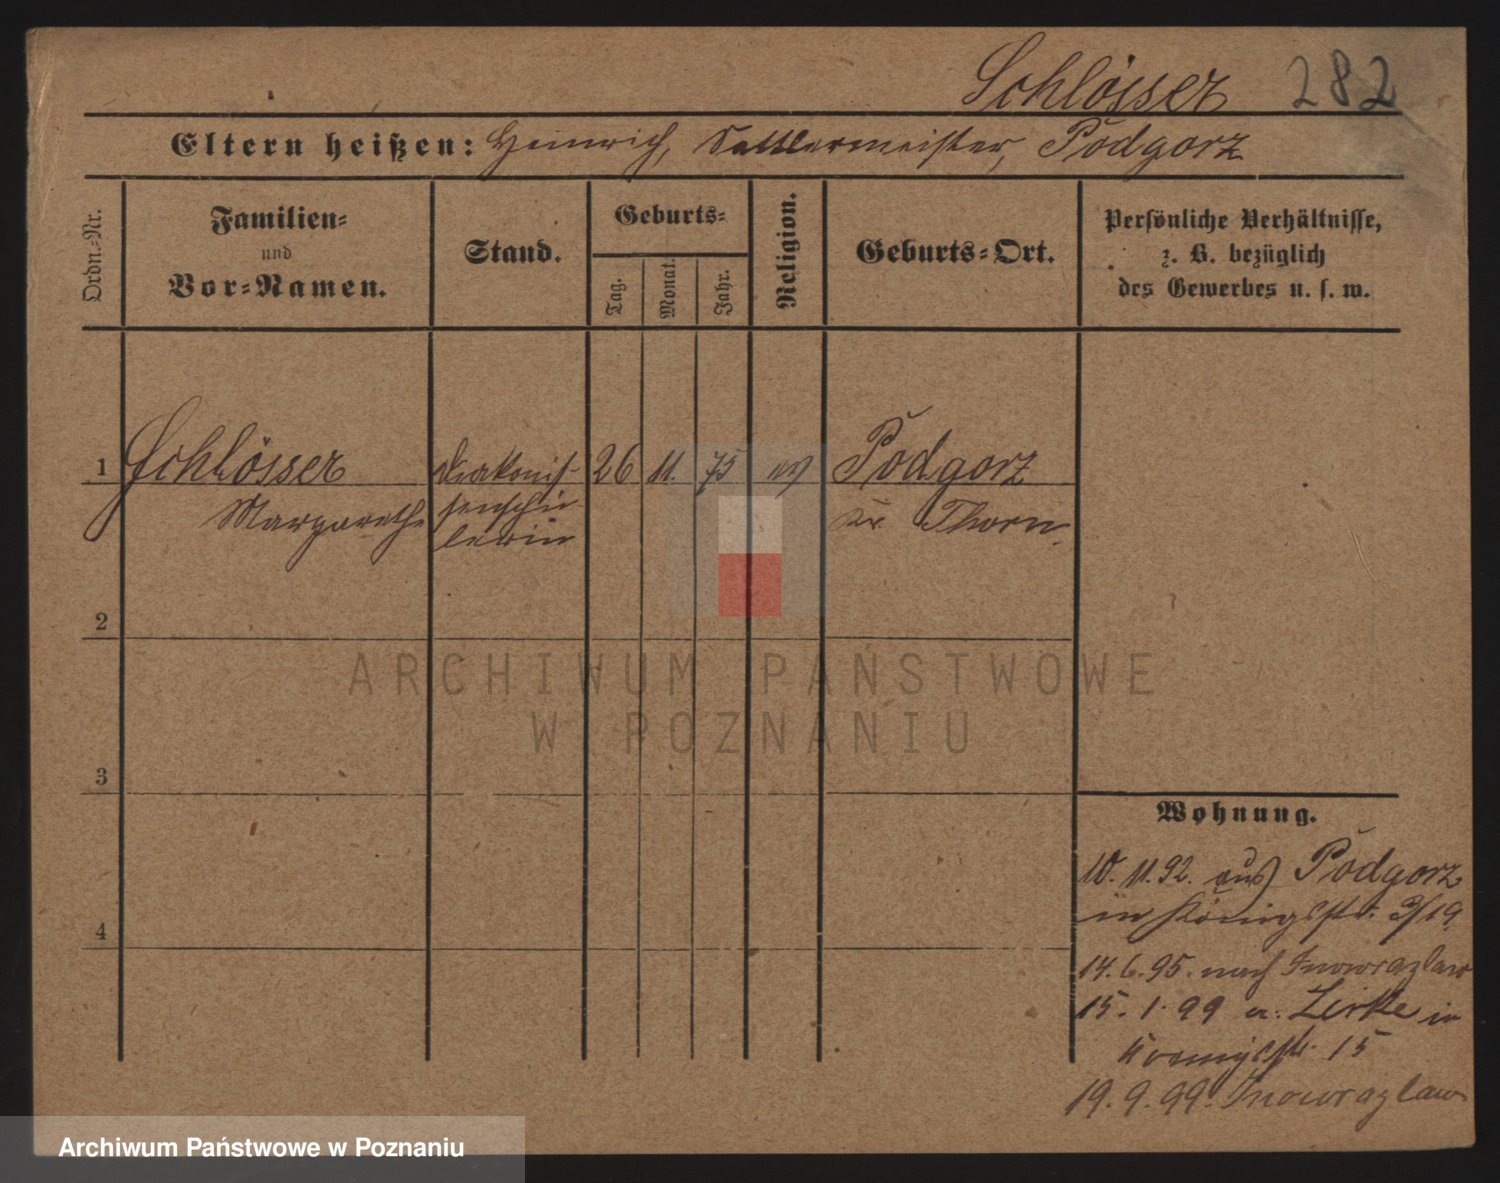 Schlösser 282
Eltern heißen: Heinrich, Sattlermeister, Podgorz
Ordn.-Nr.
Familien-
und
Vor-Namen.
Stand.
Geburts-
Tag.
Monat.
Jahr.
Religion.
Geburts-Ort.
Persönliche Verhältnisse,
z. B. bezüglich
des Gewerbes u. s. w.
1 Schlösser Diakonis- 26 11. 75 ev Podgorz
Margarethe senschü- Kr. Thorn.
lerin
2
3
4
ARCHIWUM PAŃSTWOWE
W POZNANIU
Wohnung.
10. 11. 92. aus Podgorz
in Königstr. 3/19.
14. 6. 95. nach Inowrazlaw
15. 1. 99 a. Zirke in
Koenigstr. 15
19. 9. 99. Inowrazlaw
Archiwum Państwowe w Poznaniu